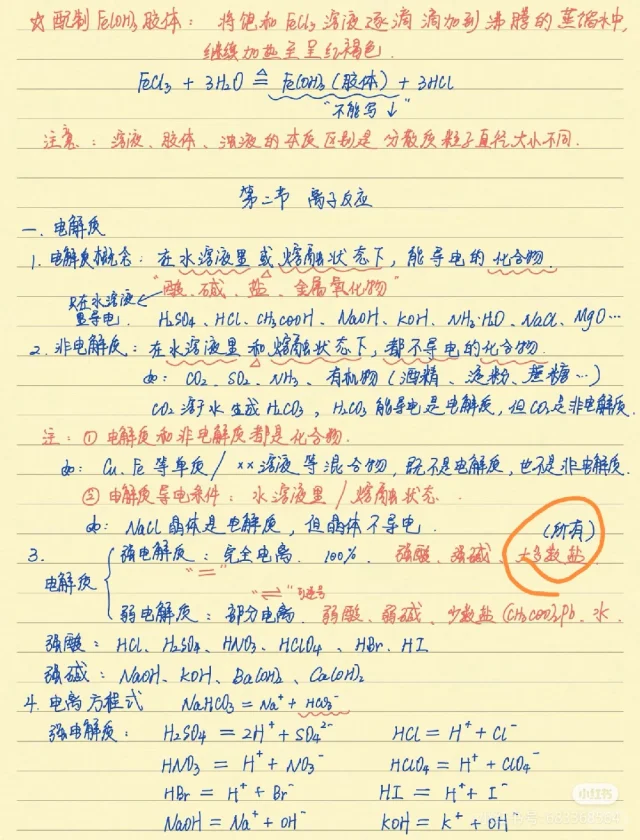 ☆配制Fe(OH)₃胶体：将饱和FeCl₃溶液逐滴滴加到沸腾的蒸馏水中，
继续加热至呈红褐色.
FeCl₃ + 3H₂O ≜ Fe(OH)₃(胶体) + 3HCl
"不能写↓"
注意：溶液、胶体、浊液的本质区别是分散质粒子直径大小不同.
第二节 离子反应
一. 电解质
1. 电解质概念：在水溶液里或熔融状态下，能导电的化合物.
"酸、碱、盐、金属氧化物"
只在水溶液
里导电.
H₂SO₄、HCl、CH₃COOH、NaOH、KOH、NH₃·H₂O、NaCl、MgO…
2. 非电解质：在水溶液里和熔融状态下，都不导电的化合物.
如：CO₂、SO₂、NH₃、有机物(酒精、淀粉、蔗糖…)
CO₂溶于水生成H₂CO₃，H₂CO₃能导电是电解质，但CO₂是非电解质.
注：①电解质和非电解质都是化合物.
如：Cu、Fe等单质/××溶液等混合物，既不是电解质，也不是非电解质.
②电解质导电条件：水溶液里/熔融状态.
如：NaCl晶体是电解质，但晶体不导电.
(所有)
3.
电解质
强电解质：完全电离. 100%. 强酸、强碱、大多数盐
"="
"⇌"可逆号
弱电解质：部分电离. 弱酸、弱碱、少数盐(CH₃COO)₂Pb、水.
强酸：HCl、H₂SO₄、HNO₃、HClO₄、HBr、HI
强碱：NaOH、KOH、Ba(OH)₂、Ca(OH)₂
4. 电离方程式 NaHCO₃ = Na⁺ + HCO₃⁻
强电解质：H₂SO₄ = 2H⁺ + SO₄²⁻ HCl = H⁺ + Cl⁻
HNO₃ = H⁺ + NO₃⁻ HClO₄ = H⁺ + ClO₄⁻
HBr = H⁺ + Br⁻ HI = H⁺ + I⁻
NaOH = Na⁺ + OH⁻ KOH = K⁺ + OH⁻
小红书